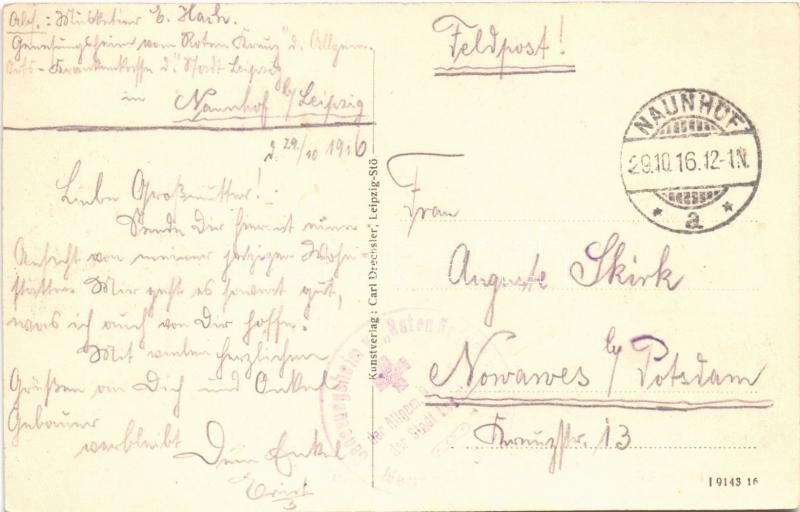 Abs.: Musketier E. Hach.
Genesungsheim vom Roten Kreuz d. Allgem.
Orts-Krankenkasse d. Stadt Leipzig
in Naunhof b/Leipzig
d. 29/10 1916
Liebe Großmutter!
Sende Dir hiermit eine
Ansicht von meiner jetzigen Wohn-
stätte. Mir geht es soweit gut,
was ich auch von Dir hoffe.
Mit vielen herzlichen
Grüßen an Dich und Onkel
Gebauer
verbleibt Dein Enkel
Erich
Kunstverlag: Carl Drechsler, Leipzig-Stö
Feldpost!
NAUNHOF
29.10.16.12-1N.
* a *
Frau
Auguste Skirk
Nowawes b/Potsdam
Kreuzstr. 13
Genesungsheim "Roten
der Allgem.
der Stadt
I 9143 16